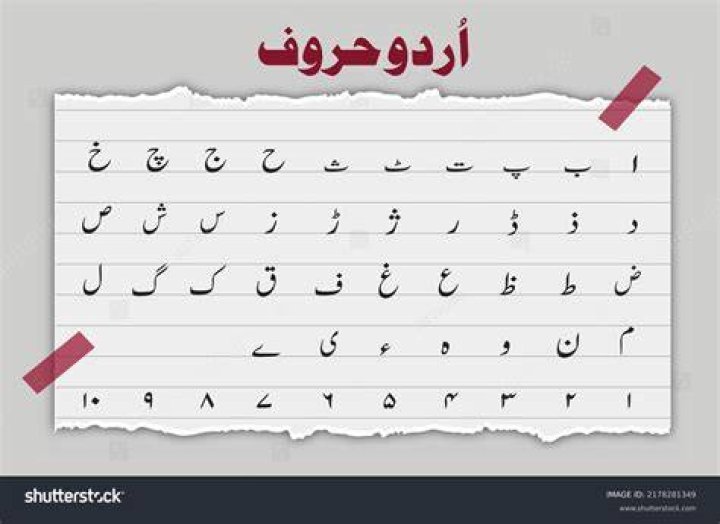 اُردو حروف
ا ب پ ت ٹ ث ح ج چ خ
د ذ ڈ ر ژ ڑ ز س ش ص
ض ط ظ ع غ ف ق ک گ ل
م ن و ہ ء ی ے
۱ ۲ ۳ ۴ ۵ ۶ ۷ ۸ ۹ ۱۰
shutterstock
IMAGE ID: 2178281349
www.shutterstock.com